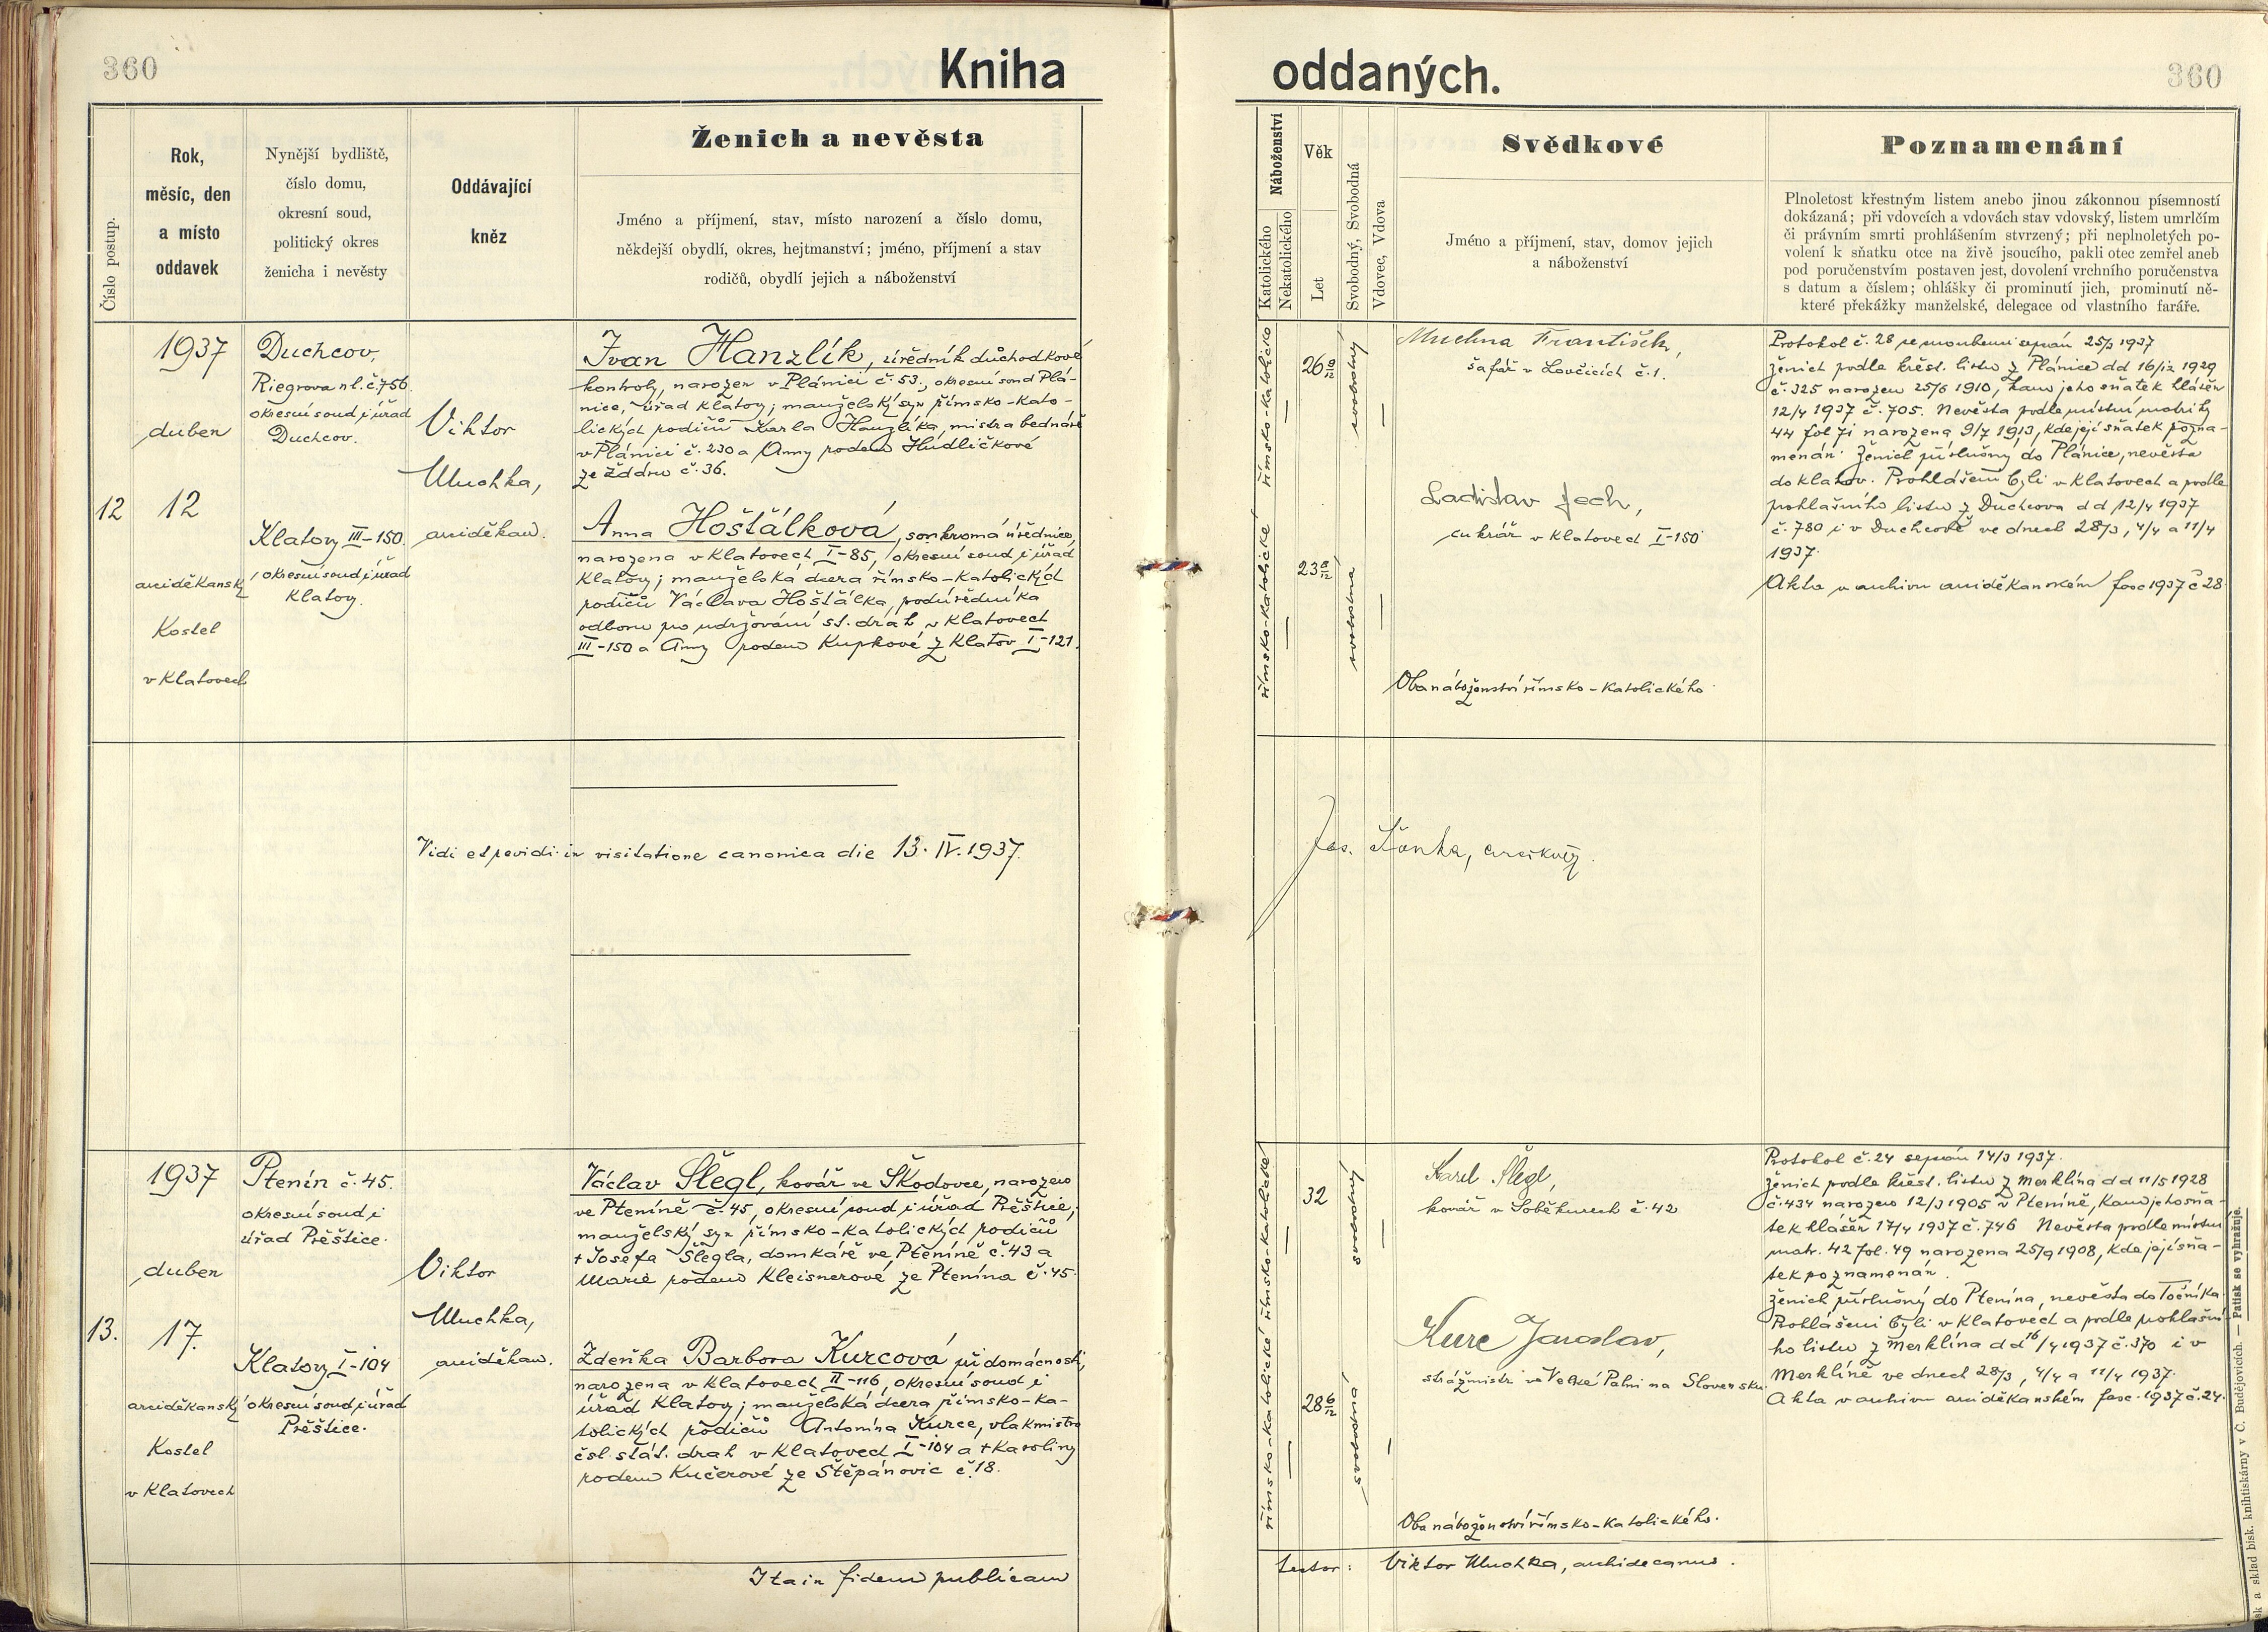 360
Kniha
oddaných.
360
Číslo postup.
Rok,
měsíc, den
a místo
oddavek
Nynější bydliště,
číslo domu,
okresní soud,
politický okres
ženicha i nevěsty
Oddávající
kněz
Ženich a nevěsta
Jméno a příjmení, stav, místo narození a číslo domu,
někdejší obydlí, okres, hejtmanství; jméno, příjmení a stav
rodičů, obydlí jejich a náboženství
Náboženství
Katolického
Nekatolického
Věk
Let
Svobodný, Svobodná
Vdovec, Vdova
Svědkové
Jméno a příjmení, stav, domov jejich
a náboženství
Poznamenání
Plnoletost křestným listem anebo jinou zákonnou písemností
dokázaná; při vdovcích a vdovách stav vdovský, listem umrlčím
či právním smrti prohlášením stvrzený; při neplnoletých po-
volení k sňatku otce na živě jsoucího, pakli otec zemřel aneb
pod poručenstvím postaven jest, dovolení vrchního poručenstva
s datum a číslem; ohlášky či prominutí jich, prominutí ně-
které překážky manželské, delegace od vlastního faráře.
12
1937
duben
12
arciděkanský
Kostel
v Klatovech
Duchcov,
Riegrova ul. č. 756.
okresní soud i úřad
Duchcov.
Klatovy III-150.
okresní soud i úřad
Klatovy.
Viktor
Muchka,
arciděkan.
Ivan Hanzlík, úředník důchodkové
kontroly, narozen v Plánici č. 53., okresní soud Plá-
nice, úřad Klatovy; manželský syn římsko-kato-
lických rodičů Karla Hanzlíka, mistra bednáře
v Plánici č. 230 a Anny rodem Hudličkové
ze Ždáru č. 36.
Anna Hošťálková, soukromá úřednice,
narozena v Klatovech I-85, okresní soud i úřad
Klatovy; manželská dcera římsko-katolických
rodičů Václava Hošťálka, podúředníka
odboru pro udržování st. drah v Klatovech
III-150 a Anny rodem Kupkové z Klatov I-121.
římsko-katolické římsko-katolické
26 9/12
23 8/12
svobodný
svobodná
Muchna František,
šafář v Lovčicích č. 1.
Ladislav Jech,
cukrář v Klatovech I-150
Oba náboženství římsko-katolického.
Protokol č. 28 se snoubenci sepsán 25/3 1937
Ženich podle křest. listu z Plánice dd 16/12 1929
č. 325 narozen 25/6 1910, kam jeho sňatek hlášen
12/4 1937 č. 705. Nevěsta podle místní matriky
44 fol 71 narozena 9/7 1913, kde její sňatek pozna-
menán. Ženich příslušný do Plánice, nevěsta
do Klatov. Prohlášeni byli v Klatovech a podle
prohlašního listu z Duchcova dd 12/4 1937
č. 780 i v Duchcově ve dnech 28/3, 4/4 a 11/4
1937.
Akta v archivu arciděkanském fasc 1937 č 28
Vidi et pervidi in visitatione canonica die 13. IV. 1937.
Jos. Šonka, arcikněz.
13.
1937
duben
17.
arciděkanský
Kostel
v Klatovech
Ptenín č. 45.
okresní soud i
úřad Přeštice.
Klatovy I-104
okresní soud i úřad
Přeštice.
Viktor
Muchka,
arciděkan.
Václav Šlegl, kovář ve Škodovce, narozen
ve Pteníně č. 45, okresní soud i úřad Přeštice;
manželský syn římsko-katolických rodičů
+ Josefa Šlegla, domkáře ve Pteníně č. 43 a
Marie rodem Kleisnerové ze Ptenína č. 45.
Zdeňka Barbora Kurcová při domácnosti,
narozena v Klatovech II-116, okresní soud i
úřad Klatovy; manželská dcera římsko-ka-
tolických rodičů Antonína Kurce, vlakmistra
čsl. stát. drah v Klatovech I-104 a + Karoliny
rodem Kučerové ze Štěpánovic č. 18.
římsko-katolické římsko-katolické
32
28 6/12
svobodný
svobodná
Karel Šlegl,
kovář v Soběkurech č. 42
Kurc Jaroslav,
strážmistr ve Velké Palni na Slovensku
Oba náboženství římsko-katolického.
Protokol č. 24 sepsán 14/3 1937.
Ženich podle křest. listu z Merklína dd 11/5 1928
č. 434 narozen 12/3 1905 v Pteníně, kam jeho sňa-
tek hlášen 17/4 1937 č. 746 Nevěsta podle místní
matr. 42 fol. 49 narozena 25/9 1908, kde její sňa-
tek poznamenán.
Ženich příslušný do Ptenína, nevěsta do Točníka
Prohlášeni byli v Klatovech a podle prohlašní-
ho listu z Merklína dd 16/4 1937 č. 370 i v
Merklíně ve dnech 28/3, 4/4 a 11/4 1937.
Akta v archivu arciděkanském fasc. 1937 č. 24.
Ita in fidem publicam
testor: Viktor Muchka, archidecanus.
sk a sklad bisk. knihtiskárny v Č. Budějovicích. — Patisk se vyhražuje.